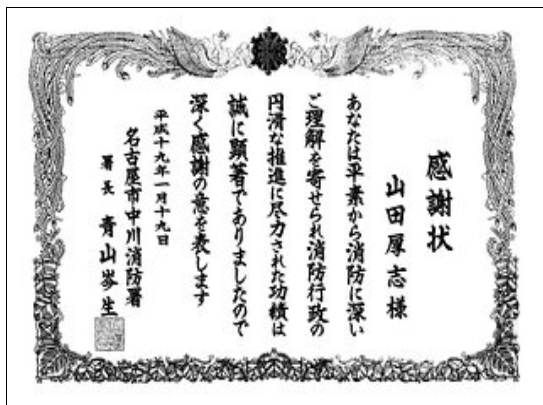 感謝状
山田厚志様
あなたは平素から消防に深い
ご理解を寄せられ消防行政の
円滑な推進に尽力された功績は
誠に顕著でありましたので
深く感謝の意を表します
平成十九年一月十九日
名古屋市中川消防署
署長 青山岑生